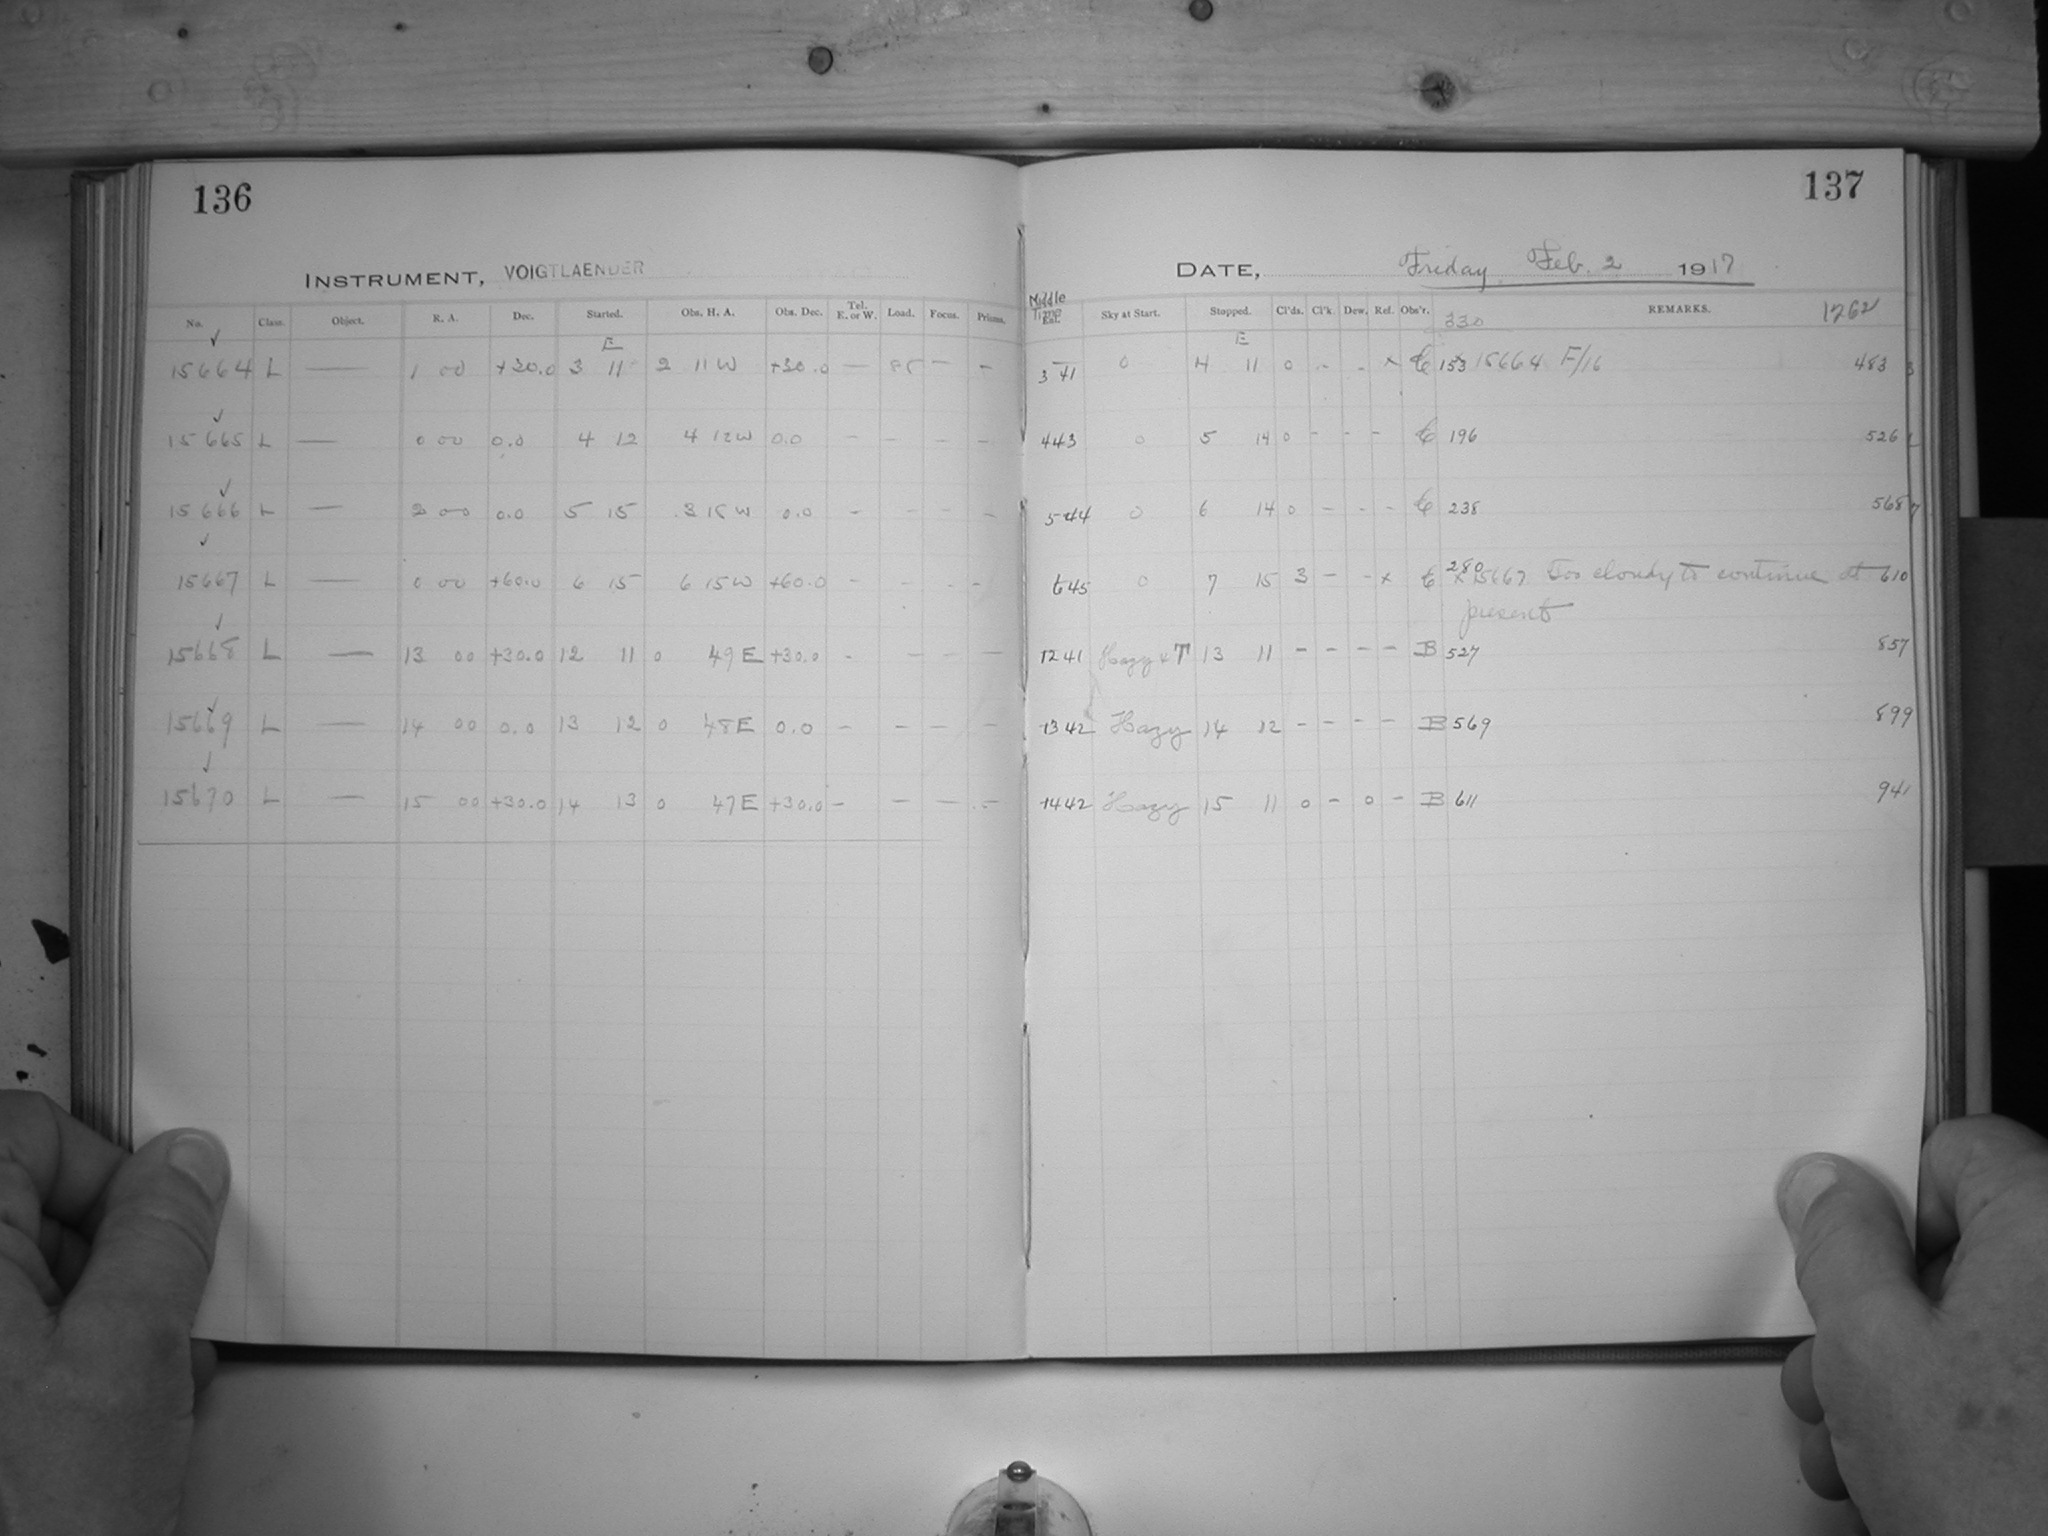 136
137
INSTRUMENT, VOIGTLAENDER
DATE, Friday Feb. 2 1917
No. Class. Object. R. A. Dec. Started. Obs. H. A. Obs. Dec. Tel. E. or W. Load. Focus. Prisms. Middle Time Est. Sky at Start. Stopped. Cl'ds. Cl'k Dew. Ref. Obs'r. 330 REMARKS.
E E
15664 L — 1 00 +30.0 3 11 2 11 W +30.0 — — — 3 41 0 4 11 0 - - x 153 x 15664 F/16 483
15665 L — 0 00 0.0 4 12 4 12 W 0.0 — — — — 443 0 5 14 0 - - - 196 526
15666 L — 2 00 0.0 5 15 3 15 W 0.0 — — — — 544 0 6 14 0 - - - 238 568
15667 L — 0 00 +60.0 6 15 6 15 W +60.0 - - - - 645 0 7 15 3 - - x 280 x 15667 Too cloudy to continue at 610
present
15668 L — 13 00 +30.0 12 11 0 49 E +30.0 - — — — 1241 Hazy & T 13 11 - - - - B 527 857
15669 L — 14 00 0.0 13 12 0 48 E 0.0 - — — — 1342 Hazy 14 12 - - - - B 569 899
15670 L — 15 00 +30.0 14 13 0 47 E +30.0 - — — - 1442 Hazy 15 11 0 - 0 - B 611 941